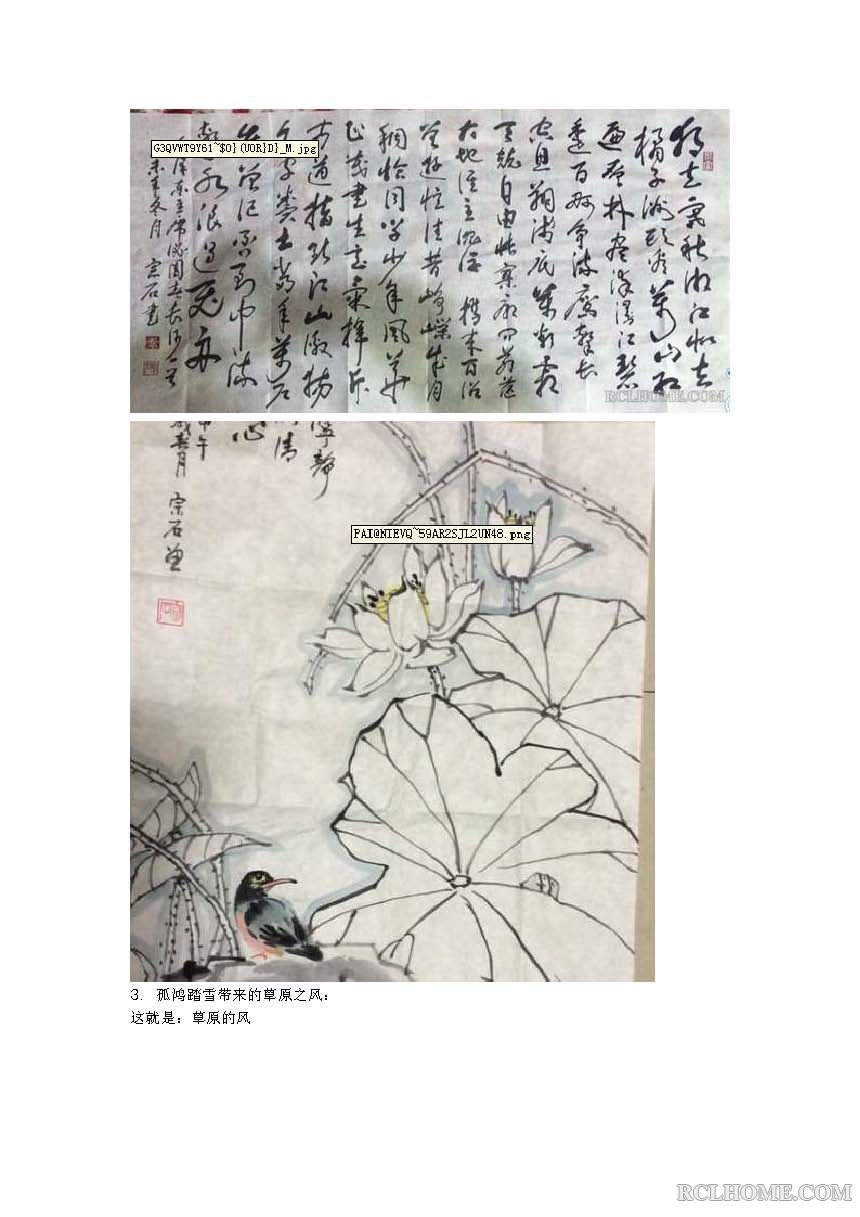 独立寒秋湘江北去
橘子洲头看万山红
遍层林尽染漫江碧
透百舸争流鹰击长
空鱼翔浅底万类霜
天竞自由怅寥廓问苍茫
大地谁主沉浮 携来百侣
曾游忆往昔峥嵘岁月
稠恰同学少年风华
正茂书生意气挥斥
方遒指点江山激扬
文字粪土当年万户
侯曾记否到中流
击水浪遏飞舟
泽东主席沁园春长沙一首
未年冬月 宗石书
G3QVWT9Y61~$O}(UOR}D}_M.jpg
RCLHOME.COM
宁静
清
心
午
春月 宗石画
PAI@NIEVQ~59AR2SJL2UN48.png
3. 孤鸿踏雪带来的草原之风：
这就是：草原的风
RCLHOME.COM